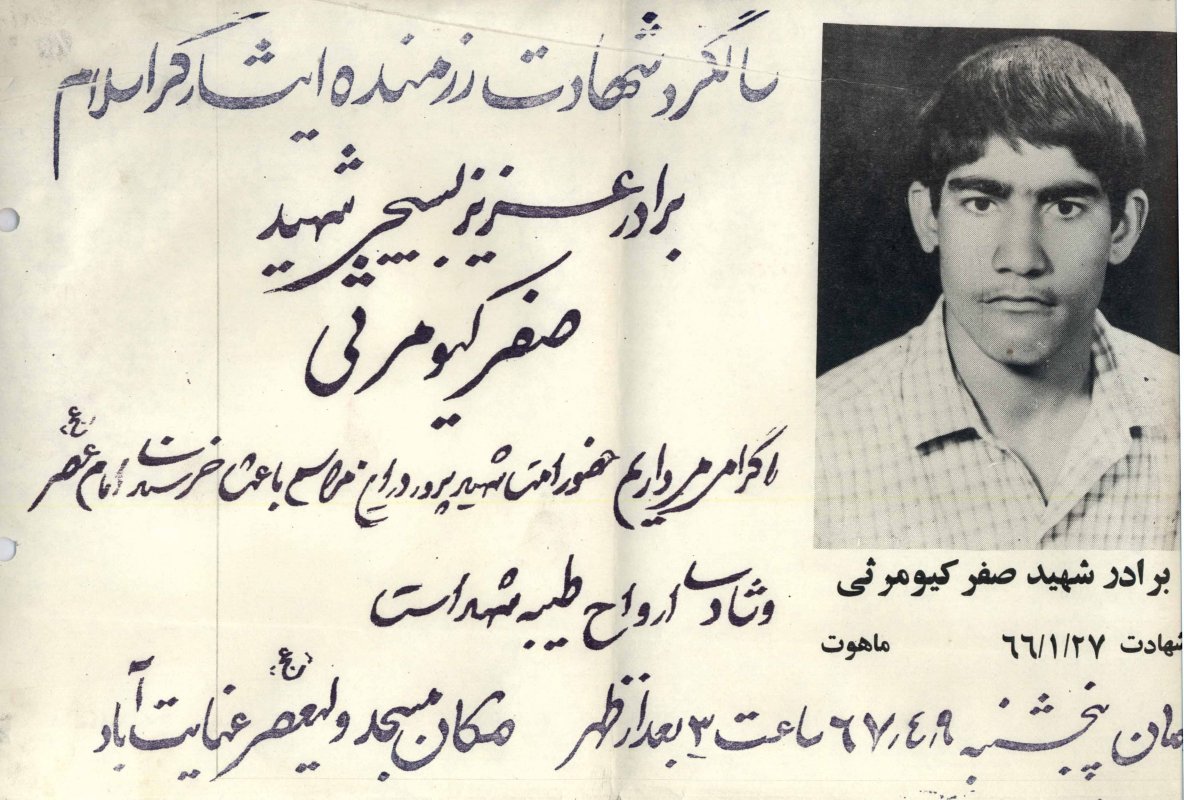 سالگرد شهادت رزمنده ایثارگر اسلام
برادر عزیز بسیجی شهید
صفر کیومرثی
را گرامی میداریم حضور امت شهید پرور در این مراسم باعث خرسندی امام عصر (عج)
و شادی ارواح طیبه شهداست
زمان پنجشنبه ۶۷/۴/۹ ساعت ۳ بعد از ظهر مکان مسجد ولیعصر (عج) عنایت آباد
برادر شهید صفر کیومرثی
شهادت ۶۶/۱/۲۷ ماهوت